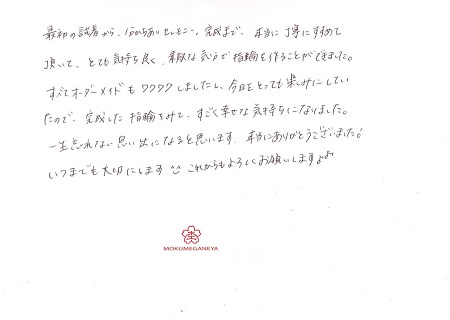 最初の試着から、分かちあいセレモニー、完成まで、本当に丁寧にすすめて
頂いて、とても気持ち良く、素敵な気分で指輪を作ることができました。
すべてオーダーメイドもワクワクしましたし、今日をとっても楽しみにしてい
たので、完成した指輪をみて、すごく幸せな気持ちになりました。
一生忘れない思い出になると思います。本当にありがとうございました!
いつまでも大切にします これからもよろしくお願いします
MOKUMEGANEYA